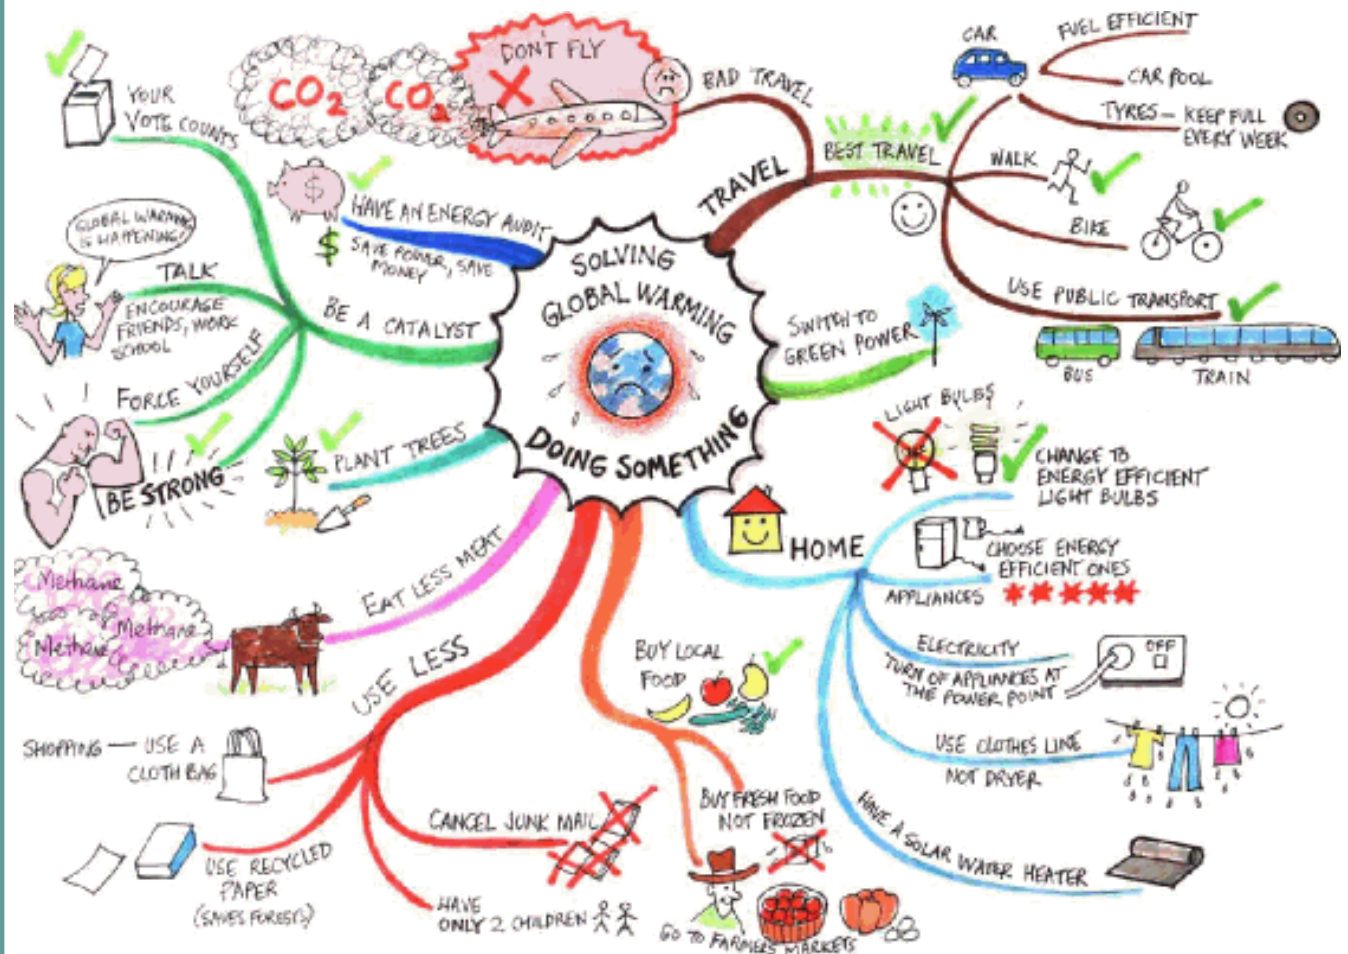 SOLVING
GLOBAL WARMING
DOING SOMETHING
TRAVEL
BAD TRAVEL
DON'T FLY
CO2
CO2
BEST TRAVEL
CAR
FUEL EFFICIENT
CAR POOL
TYRES – KEEP FULL
EVERY WEEK
WALK
BIKE
USE PUBLIC TRANSPORT
BUS
TRAIN
SWITCH TO
GREEN POWER
HOME
LIGHT BULBS
CHANGE TO
ENERGY EFFICIENT
LIGHT BULBS
CHOOSE ENERGY
EFFICIENT ONES
APPLIANCES
ELECTRICITY
TURN OF APPLIANCES AT
THE POWER POINT
OFF
USE CLOTHES LINE
NOT DRYER
HAVE A SOLAR WATER HEATER
BUY LOCAL
FOOD
BUY FRESH FOOD
NOT FROZEN
GO TO FARMERS MARKETS
USE LESS
SHOPPING — USE A
CLOTH BAG
USE RECYCLED
PAPER
(SAVES FORESTS)
CANCEL JUNK MAIL
HAVE
ONLY 2 CHILDREN
EAT LESS MEAT
Methane
Methane
Methane
PLANT TREES
BE A CATALYST
YOUR
VOTE COUNTS
TALK
GLOBAL WARMING
IS HAPPENING!
ENCOURAGE
FRIENDS, WORK
SCHOOL
FORCE YOURSELF
BE STRONG
HAVE AN ENERGY AUDIT
SAVE POWER, SAVE
MONEY
$
$